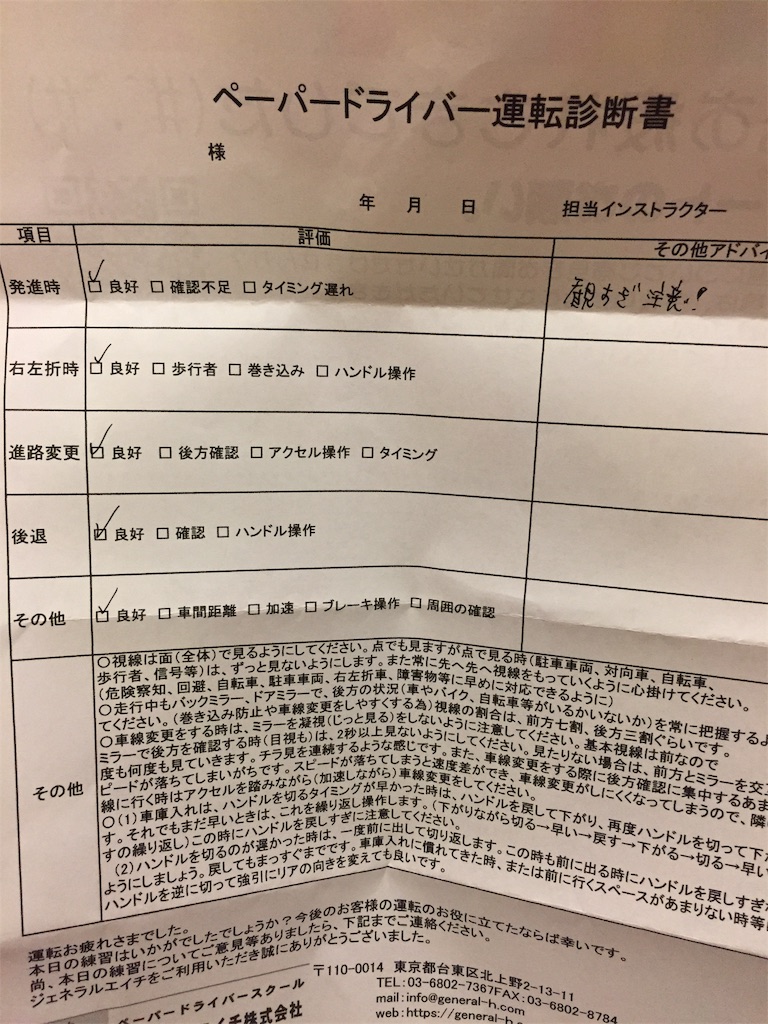 ペーパードライバー運転診断書
様
年 月 日 担当インストラクター
項目 評価 その他アドバイ
発進時 良好 □ 確認不足 □ タイミング遅れ すぎ注意!
右左折時 良好 □ 歩行者 □ 巻き込み □ ハンドル操作
進路変更 良好 □ 後方確認 □ アクセル操作 □ タイミング
後退 良好 □ 確認 □ ハンドル操作
その他 良好 □ 車間距離 □ 加速 □ ブレーキ操作 □ 周囲の確認
その他
○視線は面(全体)で見るようにしてください。点でも見ますが点で見る時(駐車車両、対向車、自転車、
歩行者、信号等)は、ずっと見ないようにします。また常に先へ先へ視線をもっていくように心掛けてください。
(危険察知、回避、自転車、駐車車両、右左折車、障害物等に早めに対応できるように)
○走行中もバックミラー、ドアミラーで、後方の状況(車やバイク、自転車等がいるかいないか)を常に把握するよ
てください。(巻き込み防止や車線変更をしやすくする為)視線の割合は、前方七割、後方三割ぐらいです。
○車線変更をする時は、ミラーを凝視(じっと見る)をしないように注意してください。基本視線は前なので
ミラーで後方を確認する時(目視も)は、2秒以上見ないようにしてください。見たりない場合は、前方とミラーを交互
度も何度も見ていきます。チラ見を連続するような感じです。また、車線変更をする際に後方確認に集中するあま
ピードが落ちてしまいがちです。スピードが落ちてしまうと速度差ができ、車線変更がしにくくなってしまうので、隣
線に行く時はアクセルを踏みながら(加速しながら)車線変更をしてください。
○(1)車庫入れは、ハンドルを切るタイミングが早かった時は、ハンドルを戻して下がり、再度ハンドルを切って下が
す。それでもまだ早いときは、これを繰り返し操作します。(下がりながら切る→早い→戻す→下がる→切る→早い
すの繰り返し)この時にハンドルを戻しすぎに注意してください。
(2)ハンドルを切るのが遅かった時は、一度前に出して切り返します。この時も前に出る時にハンドルを戻しすぎ
ようにしましょう。戻してもまっすぐまでです。車庫入れに慣れてきた時、または前に行くスペースがあまりない時等
ハンドルを逆に切って強引にリアの向きを変えても良いです。
運転お疲れさまでした。
本日の練習はいかがでしたでしょうか?今後のお客様の運転のお役に立てたならば幸いです。
尚、本日の練習についてご意見等ありましたら、下記までご連絡ください。
ジェネラルエイチをご利用いただき誠にありがとうございました。
ペーパードライバースクール
エイチ株式会社
〒110-0014 東京都台東区北上野2-13-11
TEL:03-6802-7367FAX:03-6802-8784
mail:info@general-h.com
web:https://general-h.c